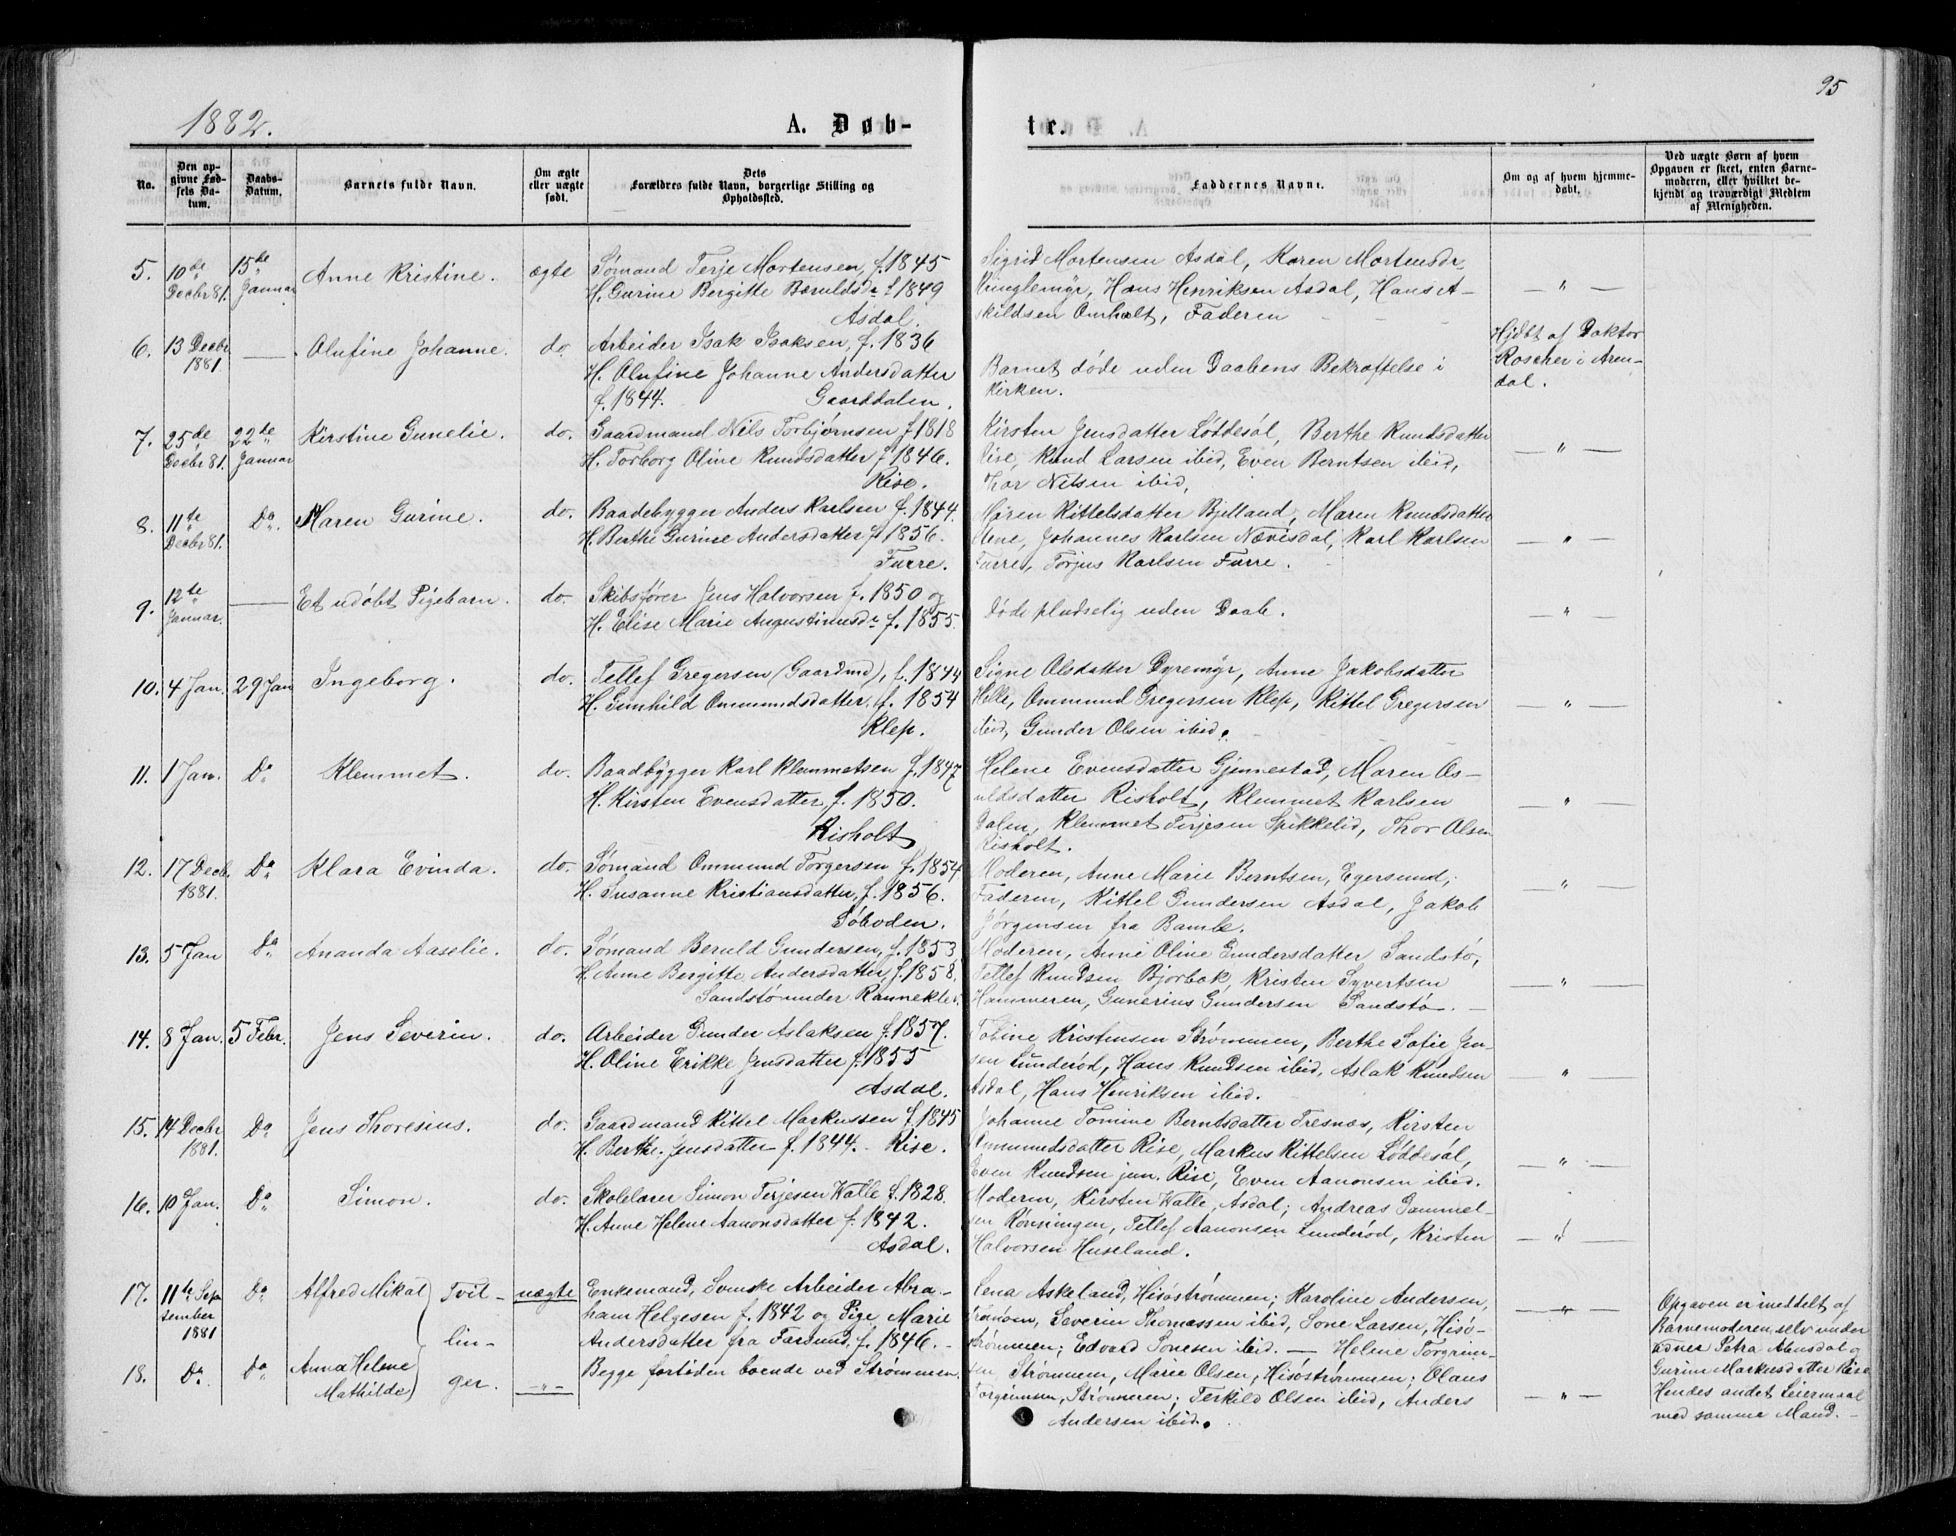 95
1882.
A. Døb-
te.
No.
Den op-
givne Fød-
sels Da-
tum.
Daabs-
Datum.
Barnets fulde Navn.
Om ægte
eller uægte
født.
Dets
Forældres fulde Navn, borgerlige Stilling og
Opholdssted.
Faddernes Navne.
Om og af hvem hjemme-
døbt.
Ved uægte Børn af hvem
Opgaven er skeet, enten Barne-
moderen, eller hvilket be-
kjendt og troværdigt Medlem
af Menigheden.
5. 10de Decbr 81. 15de Januar Anne Kristine. ægte
Sømand Terje Mortensen, f. 1845
H. Gurine Bergitte Beruldsdr f 1849
Asdal.
Sigrid Mortensen Asdal, Karen Mortensdr
Kringlemyr, Hans Henriksen Asdal, Hans A-
skildsen Omholt, Faderen
— " —
6. 13 Decbr 1881 — Olufine Johanne. do.
Arbeider Isak Isaksen, f. 1836
H. Olufine Johanne Andersdatter
f. 1844. Gaarddalen.
Barnet døde uden Daabens Bekræftelse i
Kirken.
Hjdbt af Doktor
Roscher i Aren-
dal.
7. 25de Decbr 81. 22de Januar Kirstine Gunelie. do.
Gaardmand Nils Torbjørnsen f 1818
H. Torborg Oline Knudsdatter f 1846.
Rise.
Kirsten Jensdatter Løddesøl, Berthe Knudsdatter
Rise, Knud Larsen ibid, Even Berntsen ibid,
Thor Nilsen ibid,
— " —
8. 11te Decbr 81. Do. Maren Gurine. do.
Baadebygger Anders Karlsen f. 1844.
H. Berthe Gurine Andersdatter f 1856.
Furre.
Maren Kittelsdatter Bjelland, Maren Knudsdatter
Stene, Johannes Karlsen Nævisdal, Karl Karlsen
Furre, Torjus Karlsen Furre.
— " —
9. 12te Januar. — Et udøbt Pigebarn. do.
Skibsfører Jens Halvorsen f. 1850 og
H. Elise Marie Augustinusdr f. 1855.
Døde pludselig uden Daab.
— " —
10. 4 Jan. 29 Jan Ingeborg. do.
Tellef Gregersen (Gaardmd), f. 1844
H. Gunhild Ommundsdatter, f. 1854
Klep.
Signe Olsdatter Dyremyr, Anne Jakobsdatter
Helle, Ommund Gregersen Klep, Kittel Gregersen
ibid, Gunder Olsen ibid.
— " —
11. 1 Jan. Do Klemmet. do.
Baadbygger Karl Klemmetsen f. 1847
H. Kirsten Evensdatter f. 1850.
Risholt
Helene Evensdatter Gjennestad, Maren Os-
uldsdatter Risholt, Klemmet Karlsen
Dalen, Klemmet Terjesen Spikkelid, Thor Olsen
Risholt.
— " —
12. 17 Decb. 1881. Do Klara Evinda. do.
Sømand Ommund Torgersen f. 1854
H. Susanne Kristiansdatter, f. 1856.
Søboden.
Moderen, Anne Marie Berntsen, Egersund,
Faderen, Kittel Gundersen Asdal, Jakob
Jørgensen fra Bamle.
— " —
13. 5 Jan Do Ananda Aaselie. do.
Sømand Beruld Gundersen, f. 1853.
H. Anne Bergitte Andersdatter f. 1858.
Sandstø under Rannekleiv.
Moderen, Anne Oline Gundersdatter Sandstø,
Tellef Knudsen Bjorbæk, Kristen Syvertsen
Hammeren, Gunerius Gundersen Sandstø. —
— " —
14. 8 Jan. 5 Febr. Jens Severin. do.
Arbeider Gunder Aslaksen f. 1857.
H. Oline Erikke Jensdatter f. 1855
Asdal.
Toline Kristensen Strømmen, Berthe Sofie Jen-
sen Lunderød, Hans Knudsen ibid, Aslak Knudsen
Asdal, Hans Henriksen ibid.
— " —
15. 14 Decbr 1881. Do Jens Thoresius. do.
Gaardmand Kittel Markussen f. 1845
H. Berthe Jensdatter f. 1844. — Rise.
Johanne Tomine Berntsdatter Tresnæs, Kirsten
Ommundsdatter Rise, Markus Kittelsen Løddesøl,
Even Knudsen jun. Rise, Even Aanonsen ibid.
— " —
16. 10 Jan. Do Simon. do.
Skolelærer Simon Terjesen Valle f. 1828.
H. Anne Helene Aanonsdatter f. 1842.
Asdal.
Moderen, Kirsten Valle, Asdal; Andreas Gammel-
sen Rønningen, Tellef Aanonsen Lunderød, Kristen
Halvorsen Huseland.
— " —
17. 11te September 1881 Do Alfred Mikal Tvil- uægte
Enkemand, Svenske Arbeider Abra-
ham Helgesen f. 1842 og Pige Marie
Andersdatter fra Farsund, f. 1846. —
Lena Askeland, Hisøstrømmen; Karoline Andersen,
Tromøen, Severin Thomassen ibid, Sone Larsen, Hisø-
strømmen; Edvard Sonesen ibid. — Helene Torgrim-
— " —
Opgaven er meddelt af
Barnemoderen selv under
Vidner Petra Abusdal og
Gurine Markusdatter Rise
Hendes andet Leiermaal
med samme Mand. —
lin-
18. Do. Do Anna Helene
Mathilde ger. — " —
Begge fortiden boende ved Strømmen.
sen, Strømmen, Marie Olsen, Hisøstrømmen; Olaus
Torgrimsen, Strømmeren; Terkild Olsen ibid, Anders
Andersen ibid.
— " —